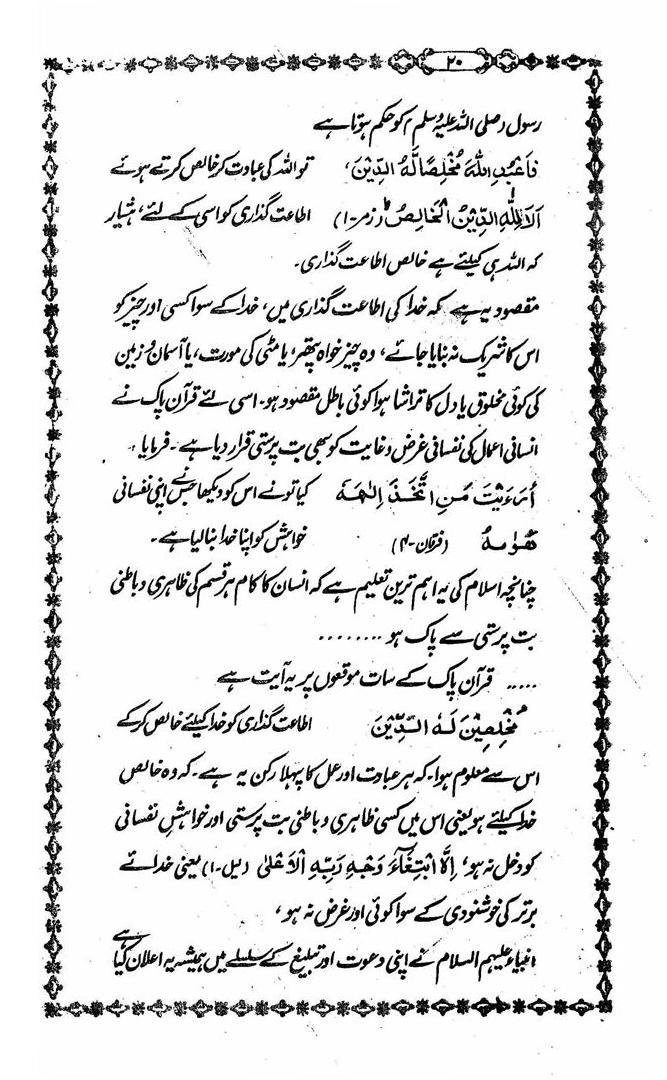 ۲۰
رسول (صلی اللہ علیہ وسلم) کو حکم ہوتا ہے
فَاعْبُدِ اللّٰهَ مُخْلِصًا لَّهُ الدِّیْنَ، تو اللہ کی عبادت کر خالص کرتے ہوئے
اَلَا لِلّٰهِ الدِّیْنُ الْخَالِصُ (زمر-۱) اطاعت گذاری کو اسی کے لئے، ہشیار
کہ اللہ ہی کیلئے ہے خالص اطاعت گذاری۔
مقصود یہ ہے کہ خدا کی اطاعت گذاری میں، خدا کے سوا کسی اور چیز کو
اس کا شریک نہ بنایا جائے، وہ چیز خواہ پتھر، یا مٹی کی مورت، یا آسمان و زمین
کی کوئی مخلوق یا دل کا تراشا ہوا کوئی باطل مقصود ہو۔ اسی لئے قرآن پاک نے
انسانی اعمال کی نفسانی غرض و غایت کو بھی بت پرستی قرار دیا ہے۔ فرمایا،
اَرَءَیْتَ مَنِ اتَّخَذَ اِلٰهَهٗ کیا تو نے اس کو دیکھا جس نے اپنی نفسانی
هَوٰىهُ (فرقان-۴) خواہش کو اپنا خدا بنا لیا ہے۔
چنانچہ اسلام کی یہ اہم ترین تعلیم ہے کہ انسان کا کام ہر قسم کی ظاہری و باطنی
بت پرستی سے پاک ہو ........
..... قرآن پاک کے سات موقعوں پر یہ آیت ہے
مُخْلِصِیْنَ لَهُ الدِّیْنَ اطاعت گذاری کو خدا کیلئے خالص کر کے
اس سے معلوم ہوا۔ کہ ہر عبادت اور عمل کا پہلا رکن یہ ہے۔ کہ وہ خالص
خدا کیلئے ہو یعنی اس میں کسی ظاہری و باطنی بت پرستی اور خواہشِ نفسانی
کو دخل نہ ہو، اِلَّا ابْتِغَآءَ وَجْهِ رَبِّهِ الْاَعْلٰی (لیل-۱) یعنی خدائے
برتر کی خوشنودی کے سوا کوئی اور غرض نہ ہو،
انبیاء علیہم السلام نے اپنی دعوت اور تبلیغ کے سلسلے میں ہمیشہ یہ اعلان کیا ہے